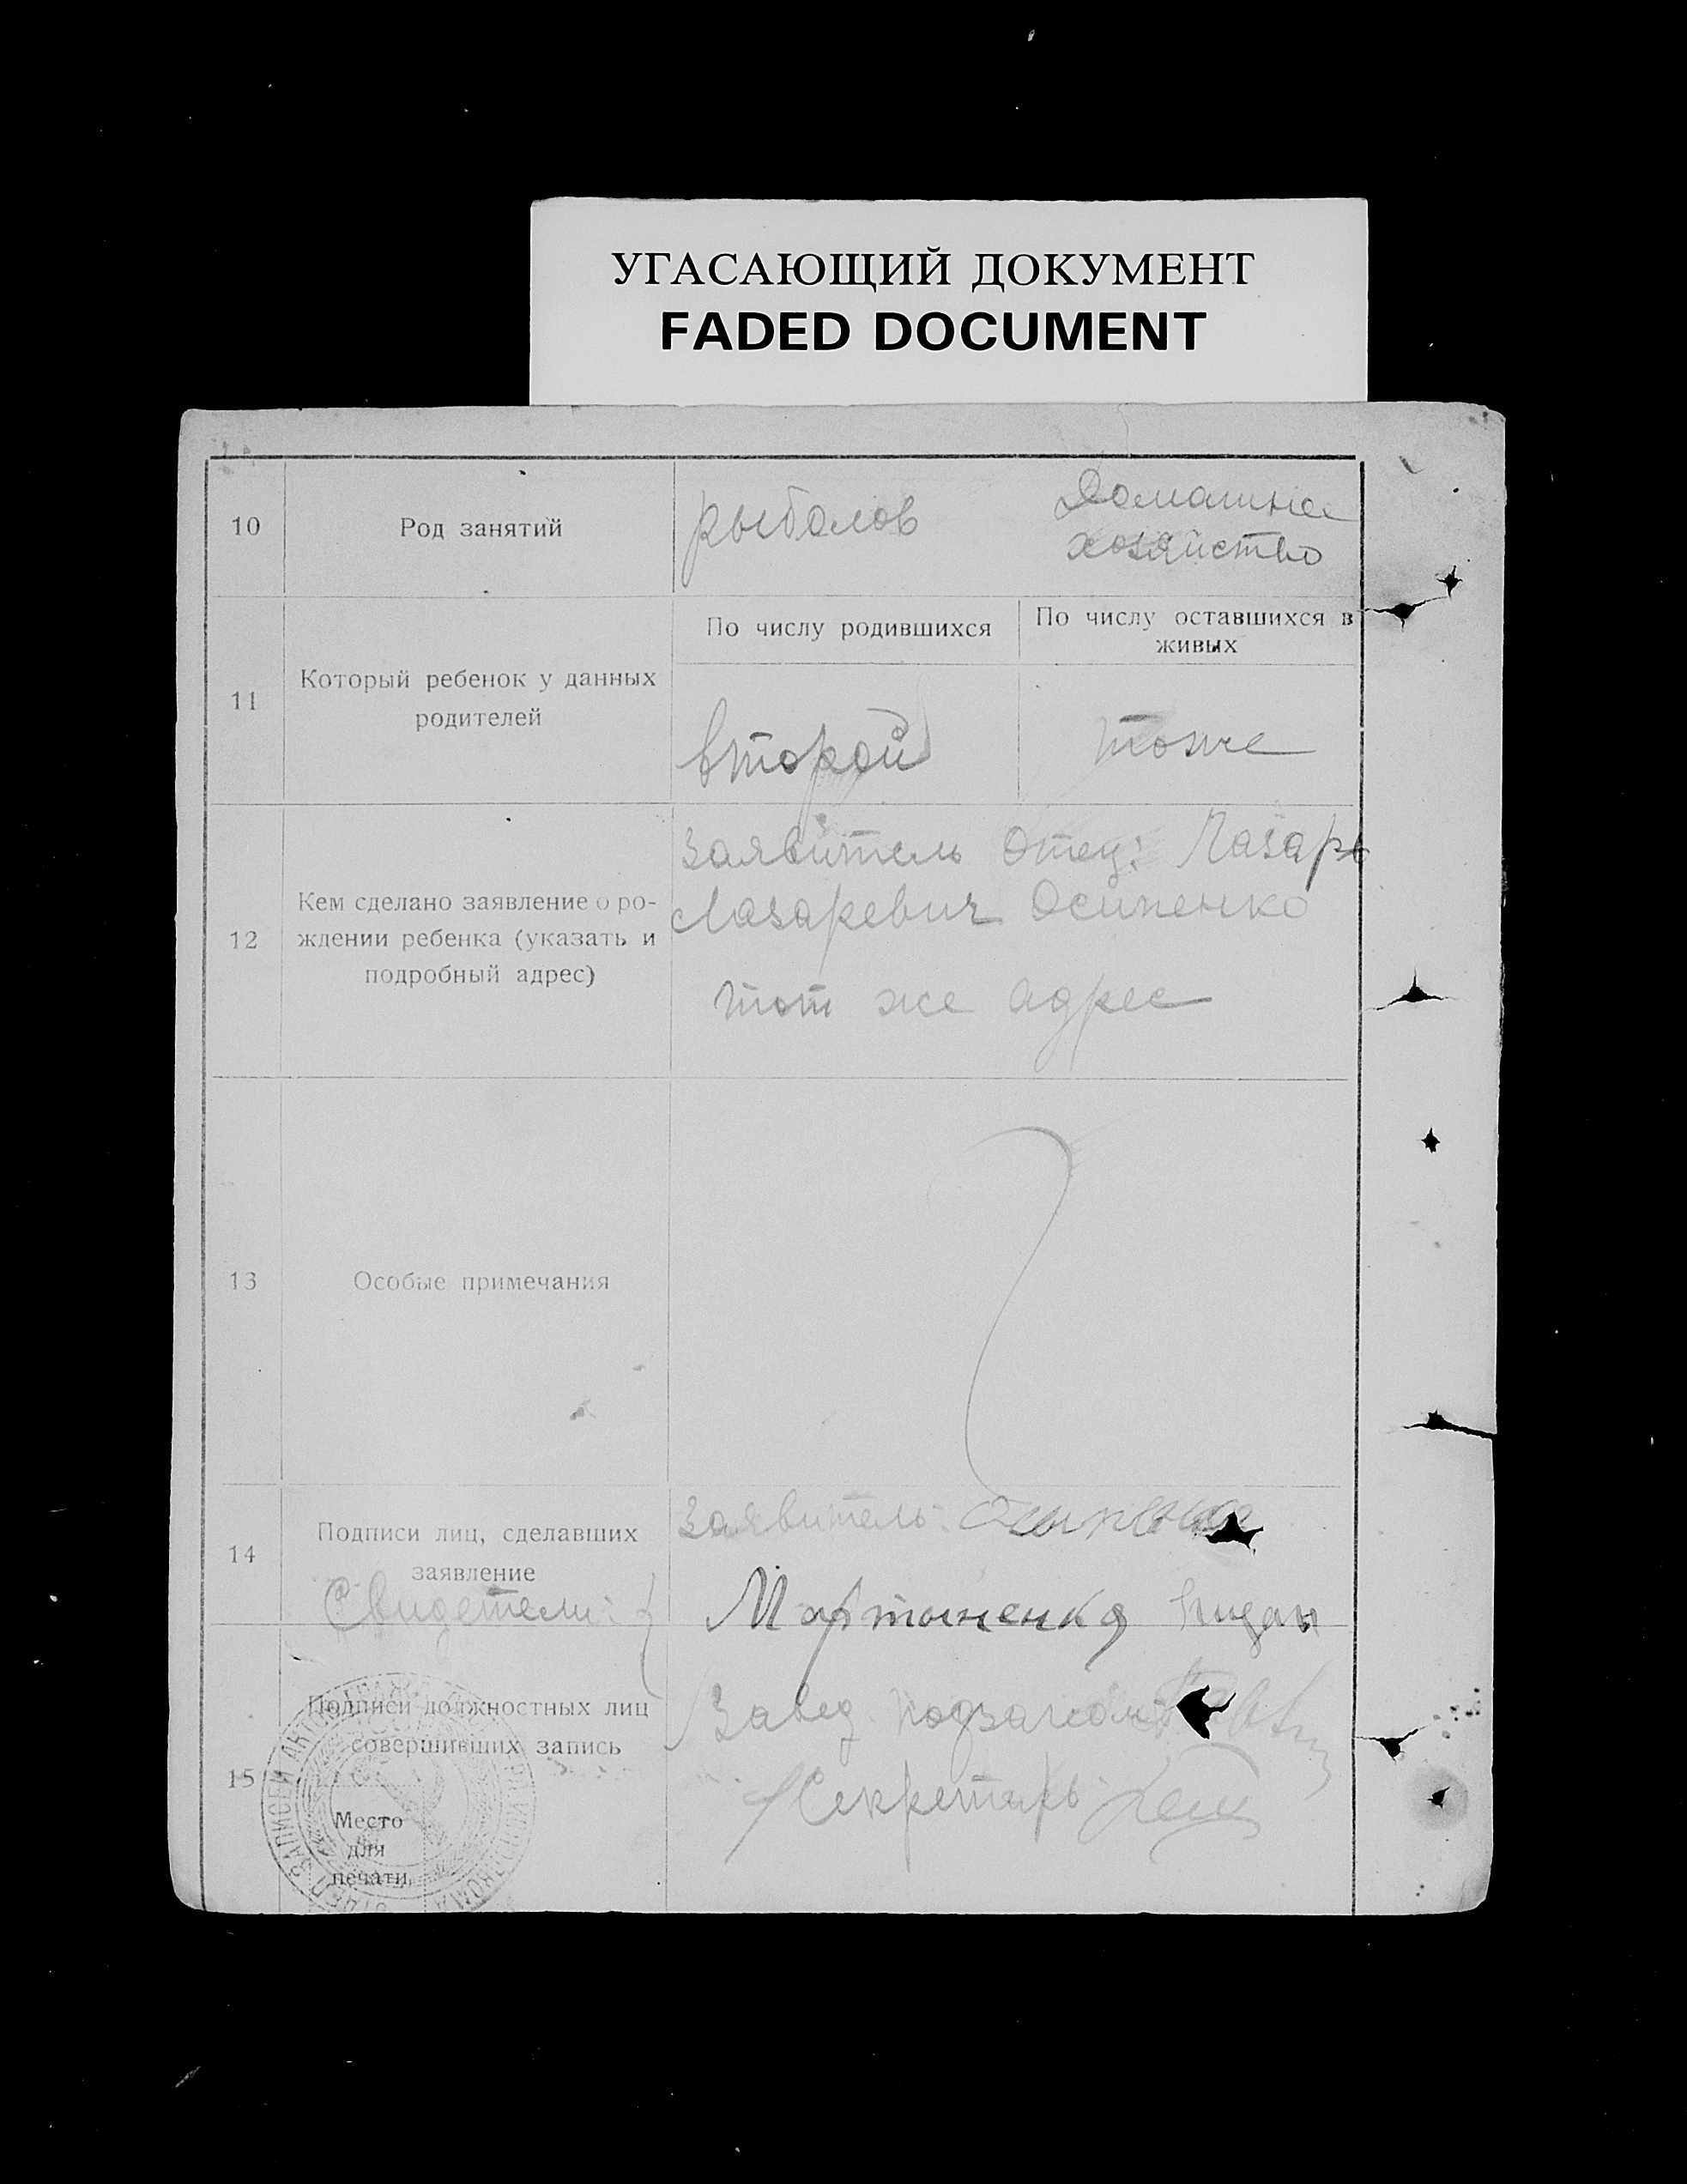 УГАСАЮЩИЙ ДОКУМЕНТ
FADED DOCUMENT
10
Род занятий
рыболов
Домашнее
хозяйство
11
Который ребенок у данных
родителей
По числу родившихся
По числу оставшихся в
живых
второй
тоже
12
Кем сделано заявление о ро-
ждении ребенка (указать и
подробный адрес)
Заявитель Отец: Лазарь
Лазаревич Осипенко
тот же адрес
13
Особые примечания
14
Подписи лиц, сделавших
заявление
Свидетели:
Заявитель:
Мартыненко
15
Подписи должностных лиц
совершивших запись
Место
для
печати
Завед.
Секретарь